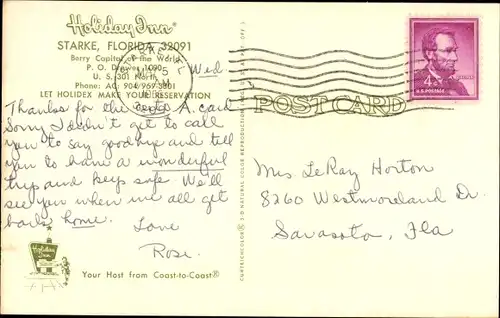 Holiday Inn®
STARKE, FLORIDA 32091
Berry Capital of the World
P. O. Drawer 1090
U. S. 301 North
Phone: AC 904/
LET HOLIDEX MAKE YOUR RESERVATION
Wed
Thanks for the A. card
Sorry I didn't get to call
you to say goodbye and tell
you to have a wonderful
trip and keep safe. We'll
see you when we all get
back home.
Love
Rose.
Holiday Inn
Your Host from Coast-to-Coast®
4¢
U.S. POSTAGE
POST CARD
Mrs LeRay Horton
8260 Westmoreland Dr.
Sarasota, Fla